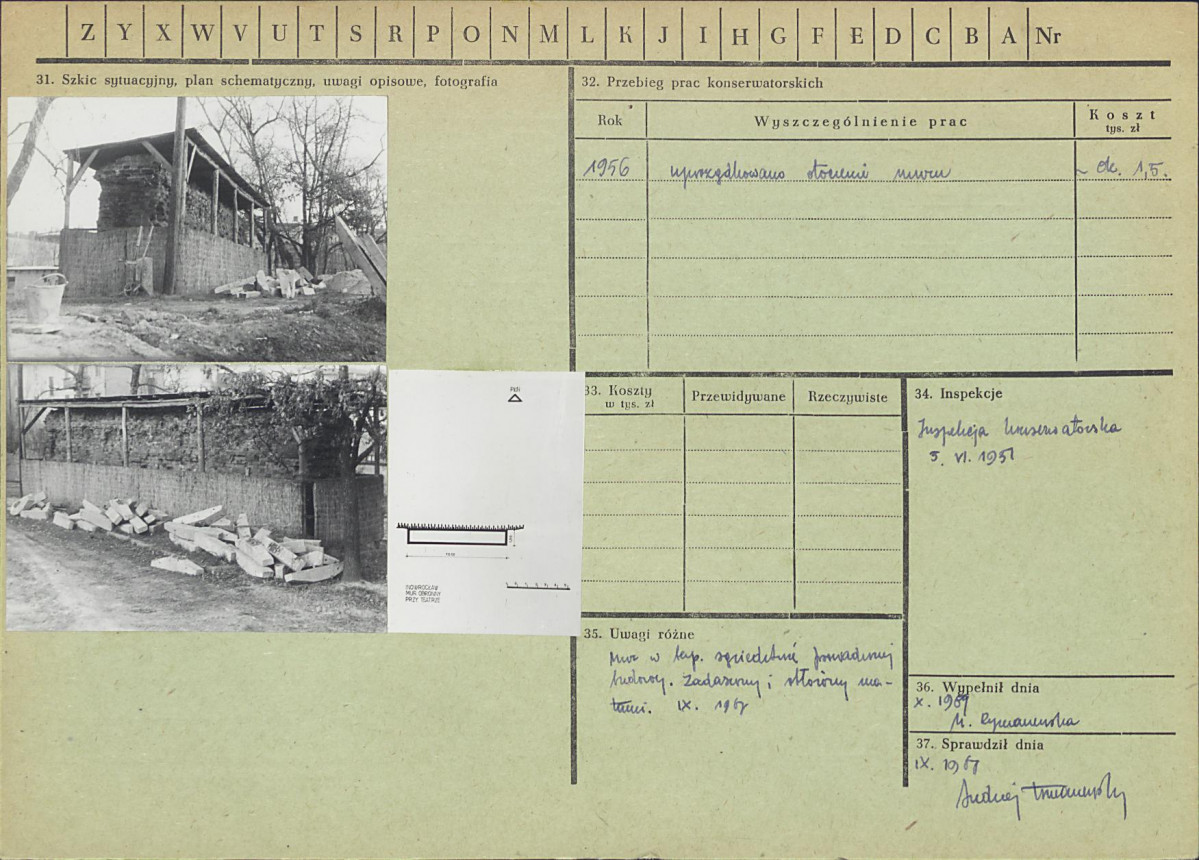 Z Y X W V U T S R P O N M L K J I H G F E D C B A Nr
31. Szkic sytuacyjny, plan schematyczny, uwagi opisowe, fotografia
PŁN
INOWROCŁAW
MUR OBRONNY
PRZY TEATRZE
32. Przebieg prac konserwatorskich
Rok Wyszczególnienie prac Koszt
tys. zł
1956 uporządkowano otoczenie muru ~ ok. 1,5.
33. Koszty
w tys. zł
Przewidywane Rzeczywiste
34. Inspekcje
Inspekcja konserwatorska
5. VI. 1951
35. Uwagi różne
Mur w prowadzonej
budowy. Zadaszony i obłożony ma-
tami. IX. 1967
36. Wypełnił dnia
X. 1969
37. Sprawdził dnia
IX. 1967
Andrzej